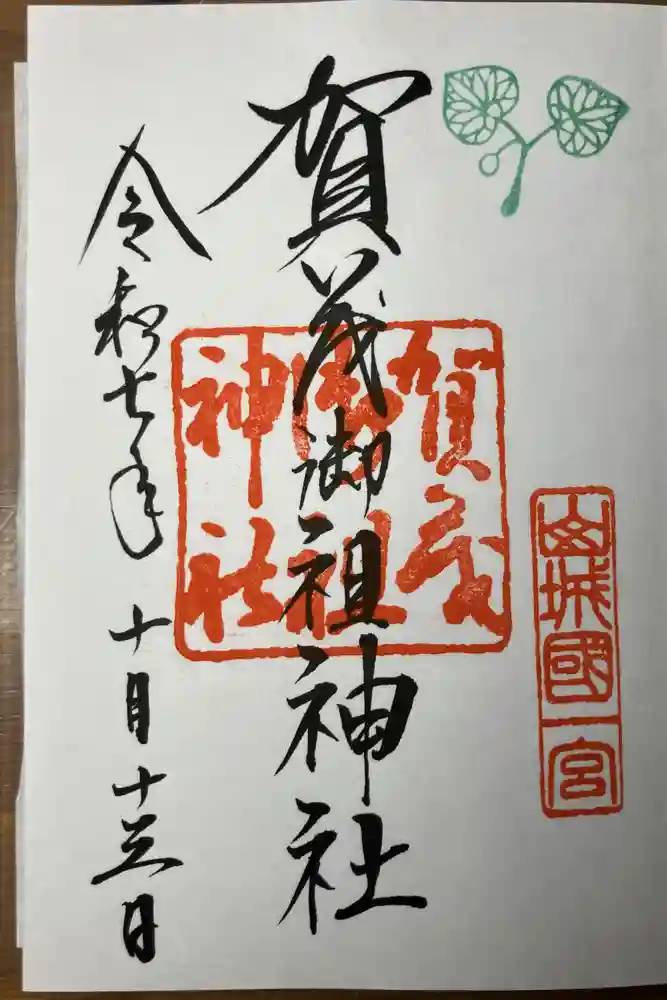 山城國一宮
賀茂御祖神社
賀茂
御祖
神社
令和七年 十月十三日